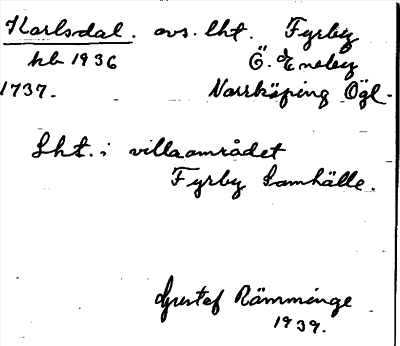 Karlsdal. avs. lht. Fyrby
kb 1936 Ö. Eneby
1737. Norrköping Ögl.
Lht. i villaområdet
Fyrby Samhälle.
Gustaf Rämminge
1939.